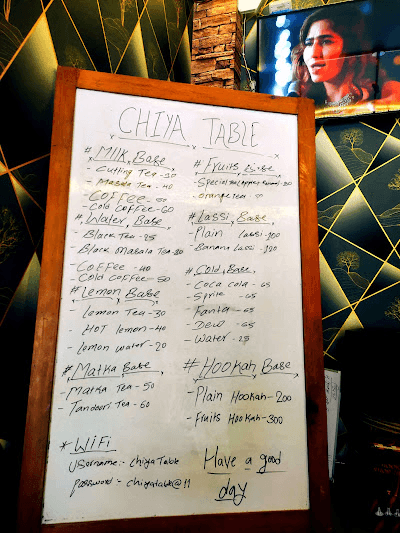 CHIYA TABLE
# Milk, Base
- Cutting Tea - 30
- Masala Tea - 40
- Coffee - 50
- Cold Coffee - 60
# Water, Base
- Black Tea - 25
- Black Masala Tea - 30
- Coffee - 40
- Cold Coffee - 50
# Lemon Base
- Lemon Tea - 30
- Hot lemon - 40
- lemon water - 20
# Matka Base
- Matka Tea - 50
- Tandoori Tea - 60
* WiFi
Username :- chiyaTable
password - chiyatable@11
# Fruits Base
- Special Tea
- Orange Tea
# Lassi, Base
- Plain Lassi - 100
- Banana Lassi - 120
# Cold, Base
- Coca cola - 65
- Sprite - 65
- Fanta - 65
- Dew - 65
- Water - 25
# Hookah, Base
- Plain Hookah - 200
- Fruits Hookah - 300
Have a good
day